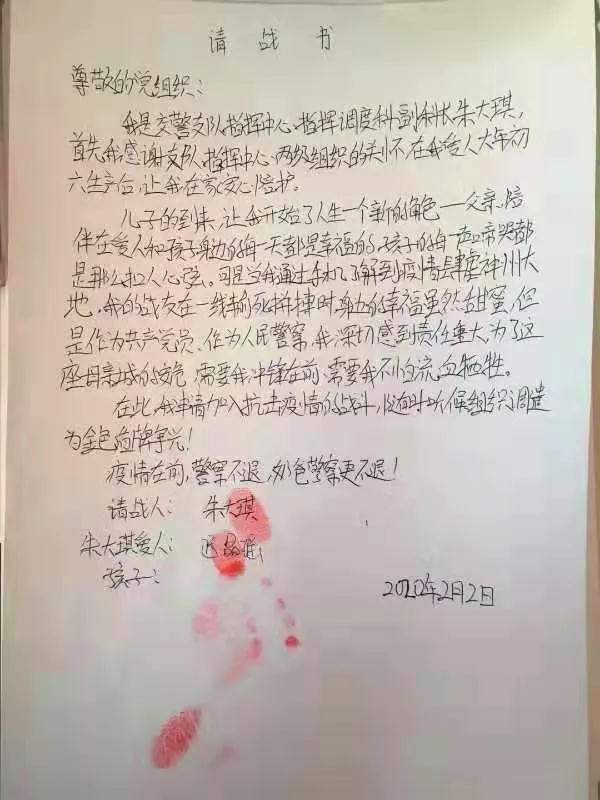 请战书
尊敬的党组织：
我是交警支队指挥中心指挥调度科副科长朱大琪，
首先我感谢支队、指挥中心两级组织的关怀，在我爱人大年初
六生产后，让我在家安心陪护。
儿子的到来，让我开始了人生一个新的角色——父亲，陪
伴在爱人和孩子身边的每一天都是幸福的，孩子的每一声啼哭都
是那么扣人心弦。可是当我通过手机了解到疫情肆虐神州大
地，我的战友在一线拼死拼搏时，身边的幸福虽然甜蜜，但
是作为共产党员、作为人民警察，我深切感到责任重大，为了这
座母亲城的 需要我冲锋在前、需要我不怕流血牺牲。
在此，我申请加入抗击疫情的战斗，随时听候组织调遣
为金色盾牌争光！
疫情在前，警察不退， 色警察更不退！
请战人： 朱大琪
朱大琪爱人：
孩子：
2020年2月2日